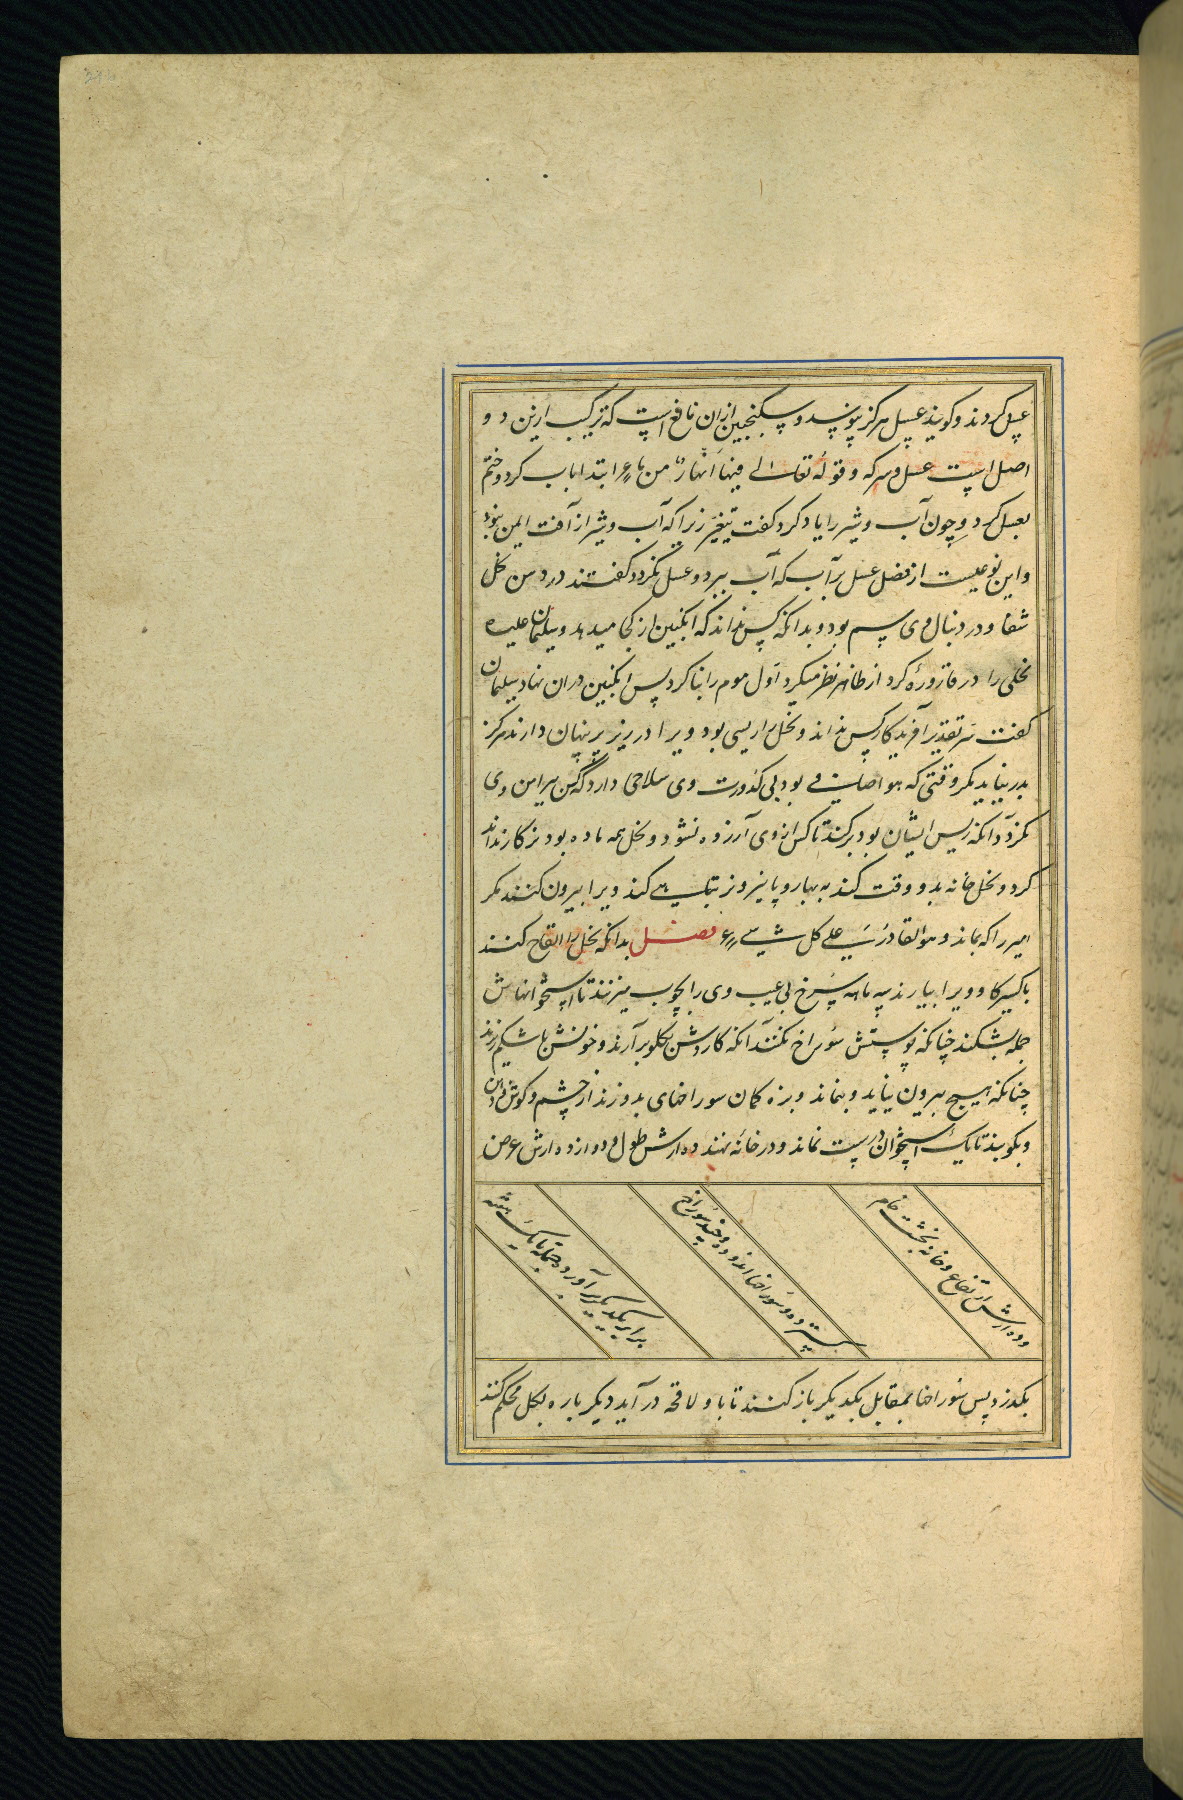 عسل کردند و کویند عسل هرکز نپوسد و سکنجبین ازان نافع است که ترکیب ازین دو
اصل است عسل و سرکه و قوله تعالی فیها انهار من ماء ابتدا باب کرد و ختم
بعسل کرد و چون آب و شیر را یاد کرد کفت تیغیر زیرا که آب و شیر از آفت ایمن نبود
و این نوعیست از فضل عسل بر آب که آب ببرد و عسل نکردد کفتند در دهن نحل
شفا و در دنبال وی سم بود و بدانکه کس نداند که انکبین از کجا میدهد و سلیمان علیه
نحلی را در قاروره کرد از ظاهر نظر میکرد اول موم را بنا کرد پس انکبین دران نهاد سلیمان
کفت سر تقدیر آفریدکار کس نداند و نحل را رییسی بود ویرا در زیر پر پنهان دارند هرکز
بدر نیاید مکر وقتی که هوا صافی بود بی کدورت وی سلاحی دارد کس پیرامن وی
نکردد آنکه رییس ایشان بود بر کند تا کس از وی آزرده نشود و نحل همه ماده بود نر کار نداند
کرد و نحل خانه بدو وقت کند به بهار و پاییز و نر کند ویرا بیرون کنند مکر
امیر را که بماند و هو القادر علی کل شیء فصل بدانکه نحل را القاح کنند
باکسیر کاو ویرا بیارند سه ماهه سرخ بی عیب وی را بچوب میزنند تا استخوانهاش
جمله بشکند چنانکه پوستش سوراخ نکنند آنکه کاردش بکلو برآرند و خونش با شکم زنند
چنانکه هیچ بیرون نیاید و بنماند و بزه کمان سوراخهای بدوزند از چشم و کوش و دهن
و بکوبند تا یک استخوان درست نماند و در خانه نهند ده ارش طول و دوازده ارش عرض
و ده ارش ارتفاع و خانه بخشت خام
ستر و ده سوراخها اندوده و چند سوراخ
برابر یکدیکر برآورد جمله تا یک هفته
بکدزد پس سوراخها بمقابل یکدیکر باز کنند تا باد لاقحه در آید دیکر باره بکل محکم کنند